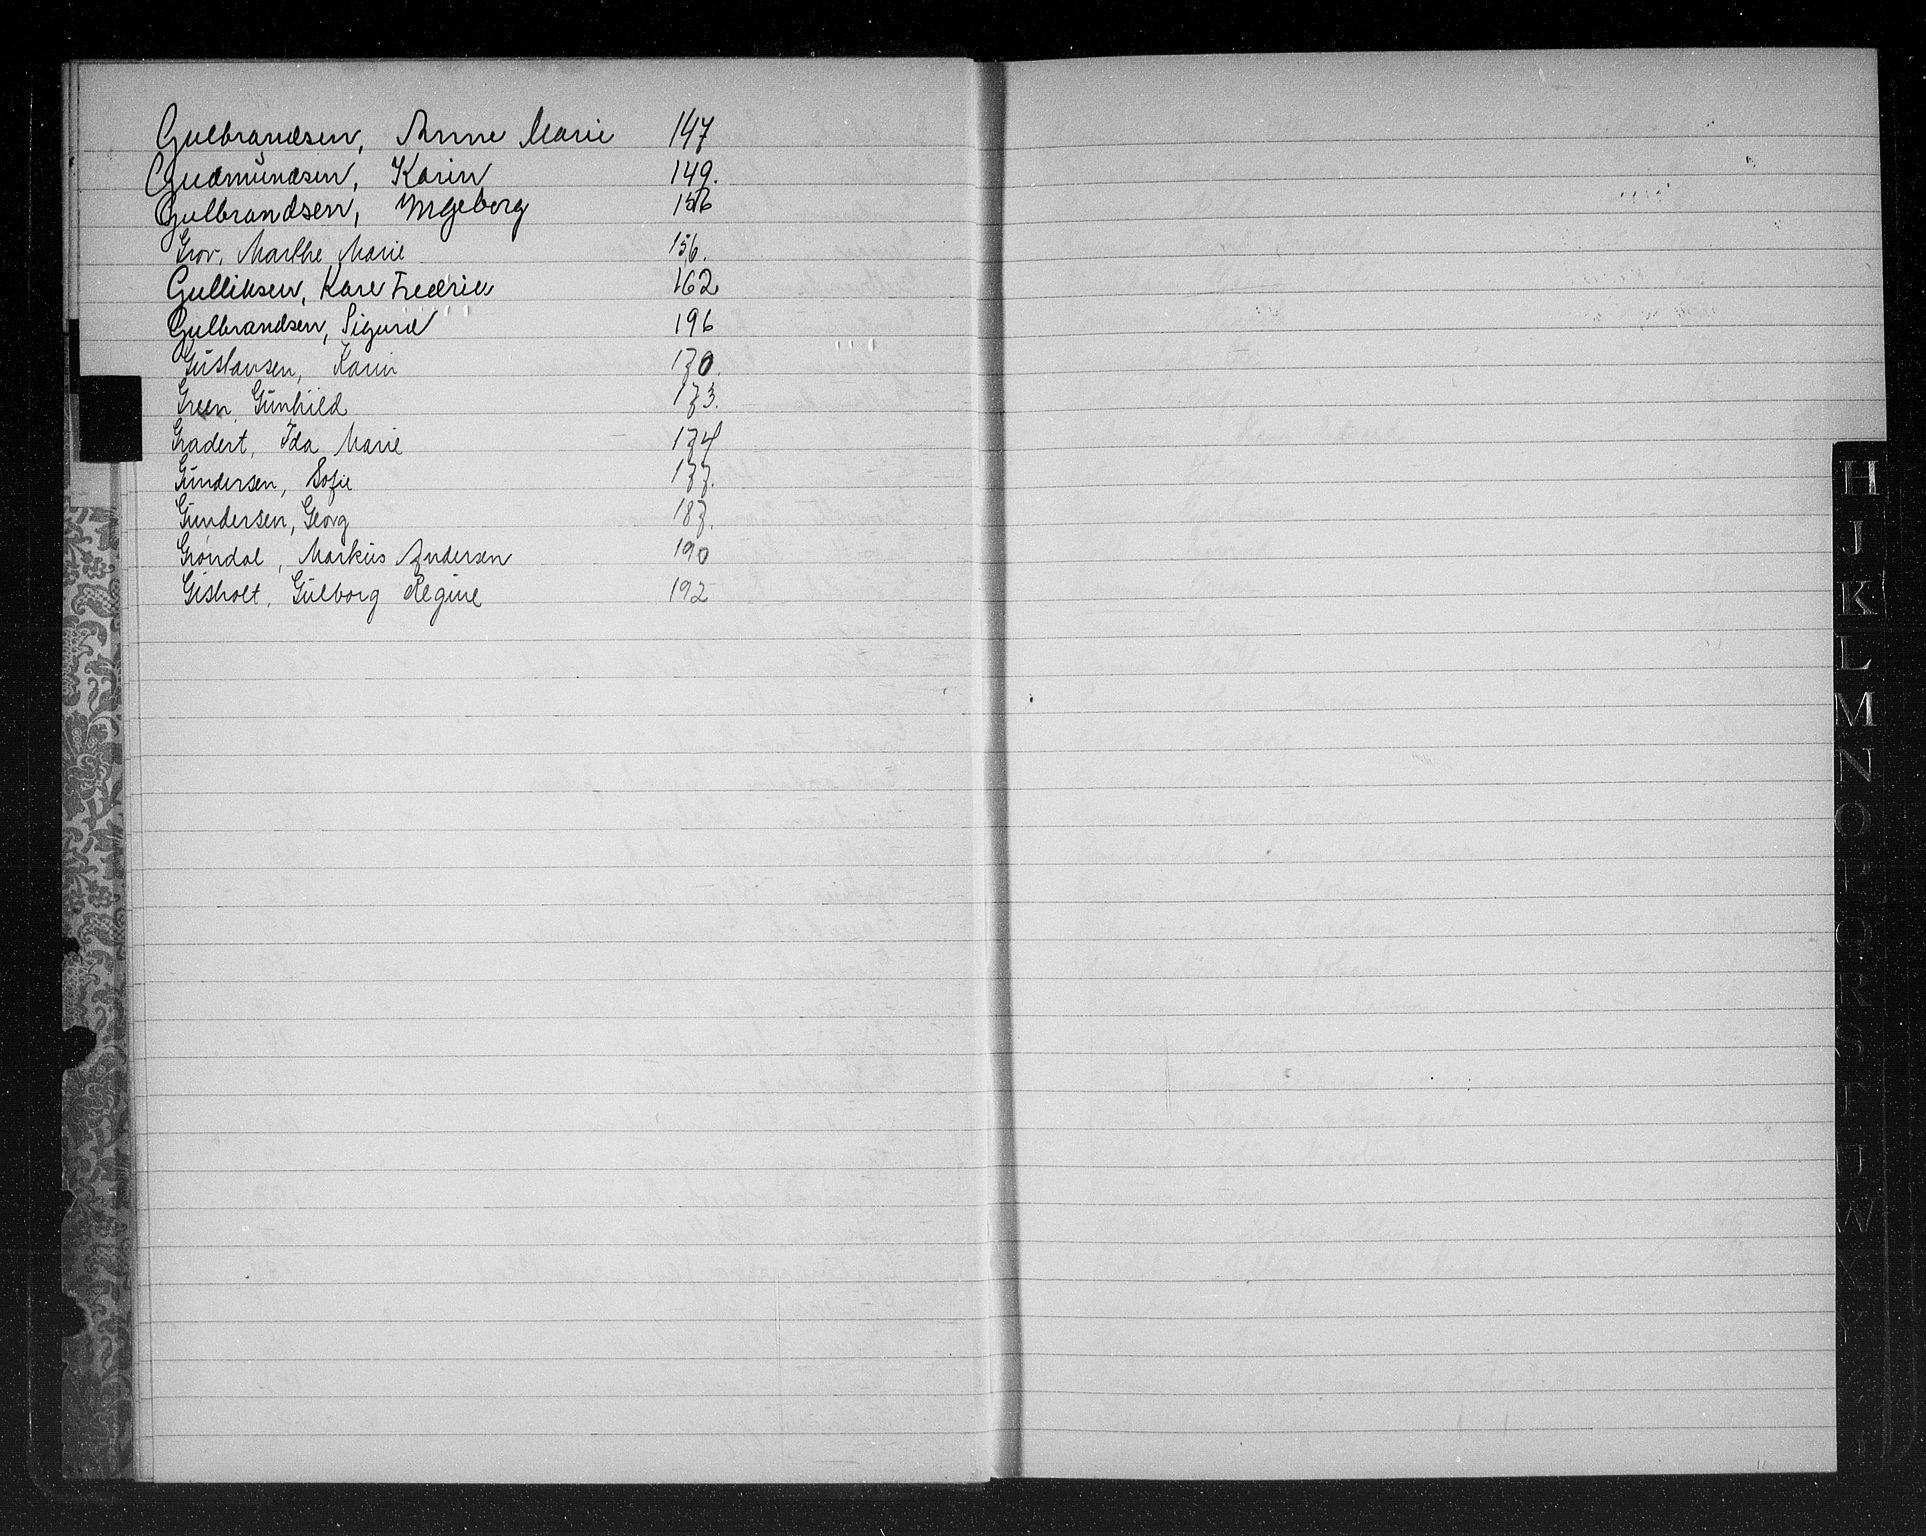 Gulbrandsen, Anne Marie 147
Gudmundsen, Karin 149.
Gulbrandsen, Yngeborg 156
Grov, Marthe Marie 156.
Gulliksen, Kare Fredrich 162
Gulbrandsen, Sigurd 196
Gustavsen, Karin 170.
Green, Gunhild 173.
Gradert, Ida Marie 174
Gundersen, Sofie 177.
Gundersen, Georg 187.
Grøndal, Markus Andersen 190
Gisholt, Gulborg Regine 192
H
J
K
L
M
N
O
P
Q
R
S
T
U
W